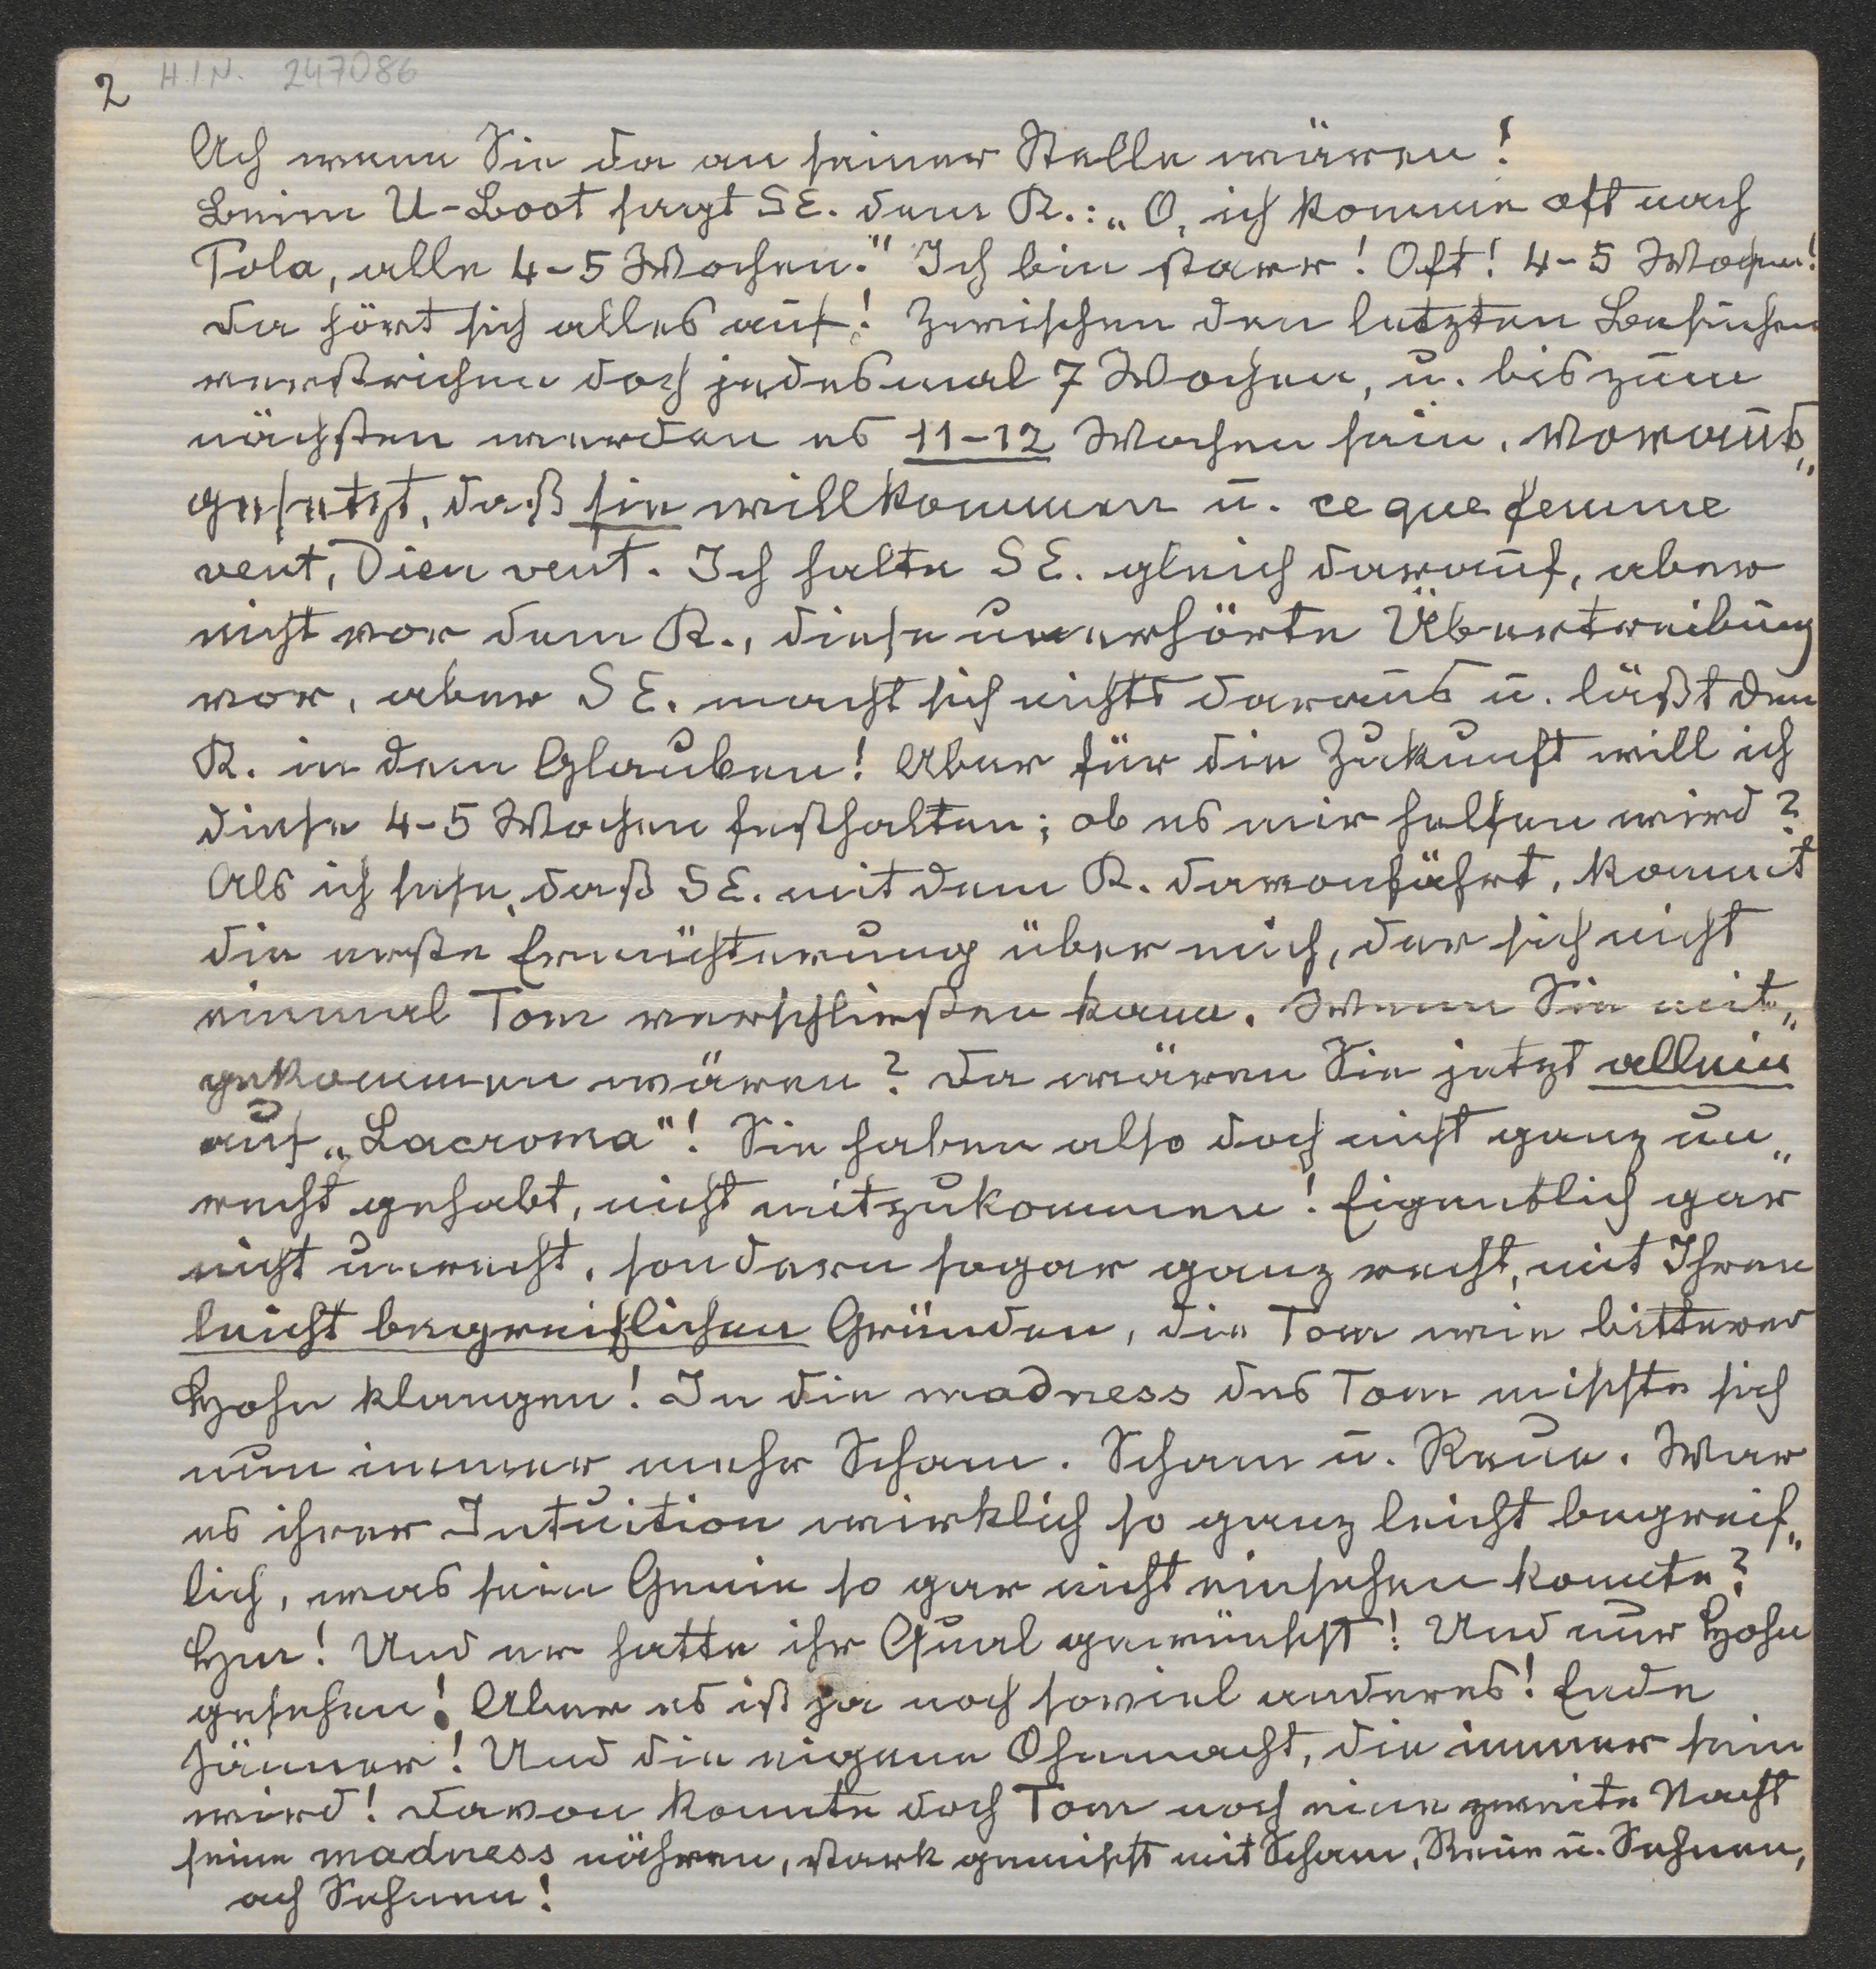 2 H.I.N. 247086
Ach wenn Sie da an seiner Stelle wären!
Beim U-Boot sagt SE. dem R.: „O, ich komme oft nach
Pola, alle 4-5 Wochen." Ich bin starr! Oft! 4-5 Wochen!
Da hört sich alles auf! Zwischen den letzten Besuchen
verstrichen doch jedesmal 7 Wochen, u. bis zum
nächsten werden es 11-12 Wochen sein. Voraus„
gesetzt, daß sie willkommen u. ce que femme
veut, Dieu veut. Ich halte SE. gleich darauf, aber
nicht vor dem R., diese unerhörte Übertreibung
vor, aber SE. macht sich nichts daraus u. läßt den
R. in dem Glauben! Aber für die Zukunft will ich
diese 4-5 Wochen festhalten; ob es mir helfen wird?
Als ich sehe, daß SE. mit dem R. davonfährt, kommt
die erste Ernüchterung über mich, der sich nicht
einmal Tom verschließen kann. Wenn Sie mit„
gekommen wären? Da wären Sie jetzt allein
auf „Lacroma"! Sie haben also doch nicht ganz un„
recht gehabt, nicht mitzukommen! Eigentlich gar
nicht unrecht, sondern sogar ganz recht, mit Ihren
leicht begreiflichen Gründen, die Tom wie bitterer
Hohn klangen! In die madness des Tom mischte sich
nun immer mehr Scham. Scham u. Reue. War
es ihrer Intuition wirklich so ganz leicht begreif„
lich, was sein Genie so gar nicht einsehen konnte?
Hm! Und er hatte ihr Qual gewünscht! Und nur Hohn
gesehen! Aber es ist ja noch soviel anderes! Ende
Jänner! Und die eigene Ohnmacht, die immer sein
wird! Davon konnte doch Tom noch eine zweite Nacht
seine madness nähren, stark gemischt mit Scham, Reue u. Sehnen,
ach Sehnen!